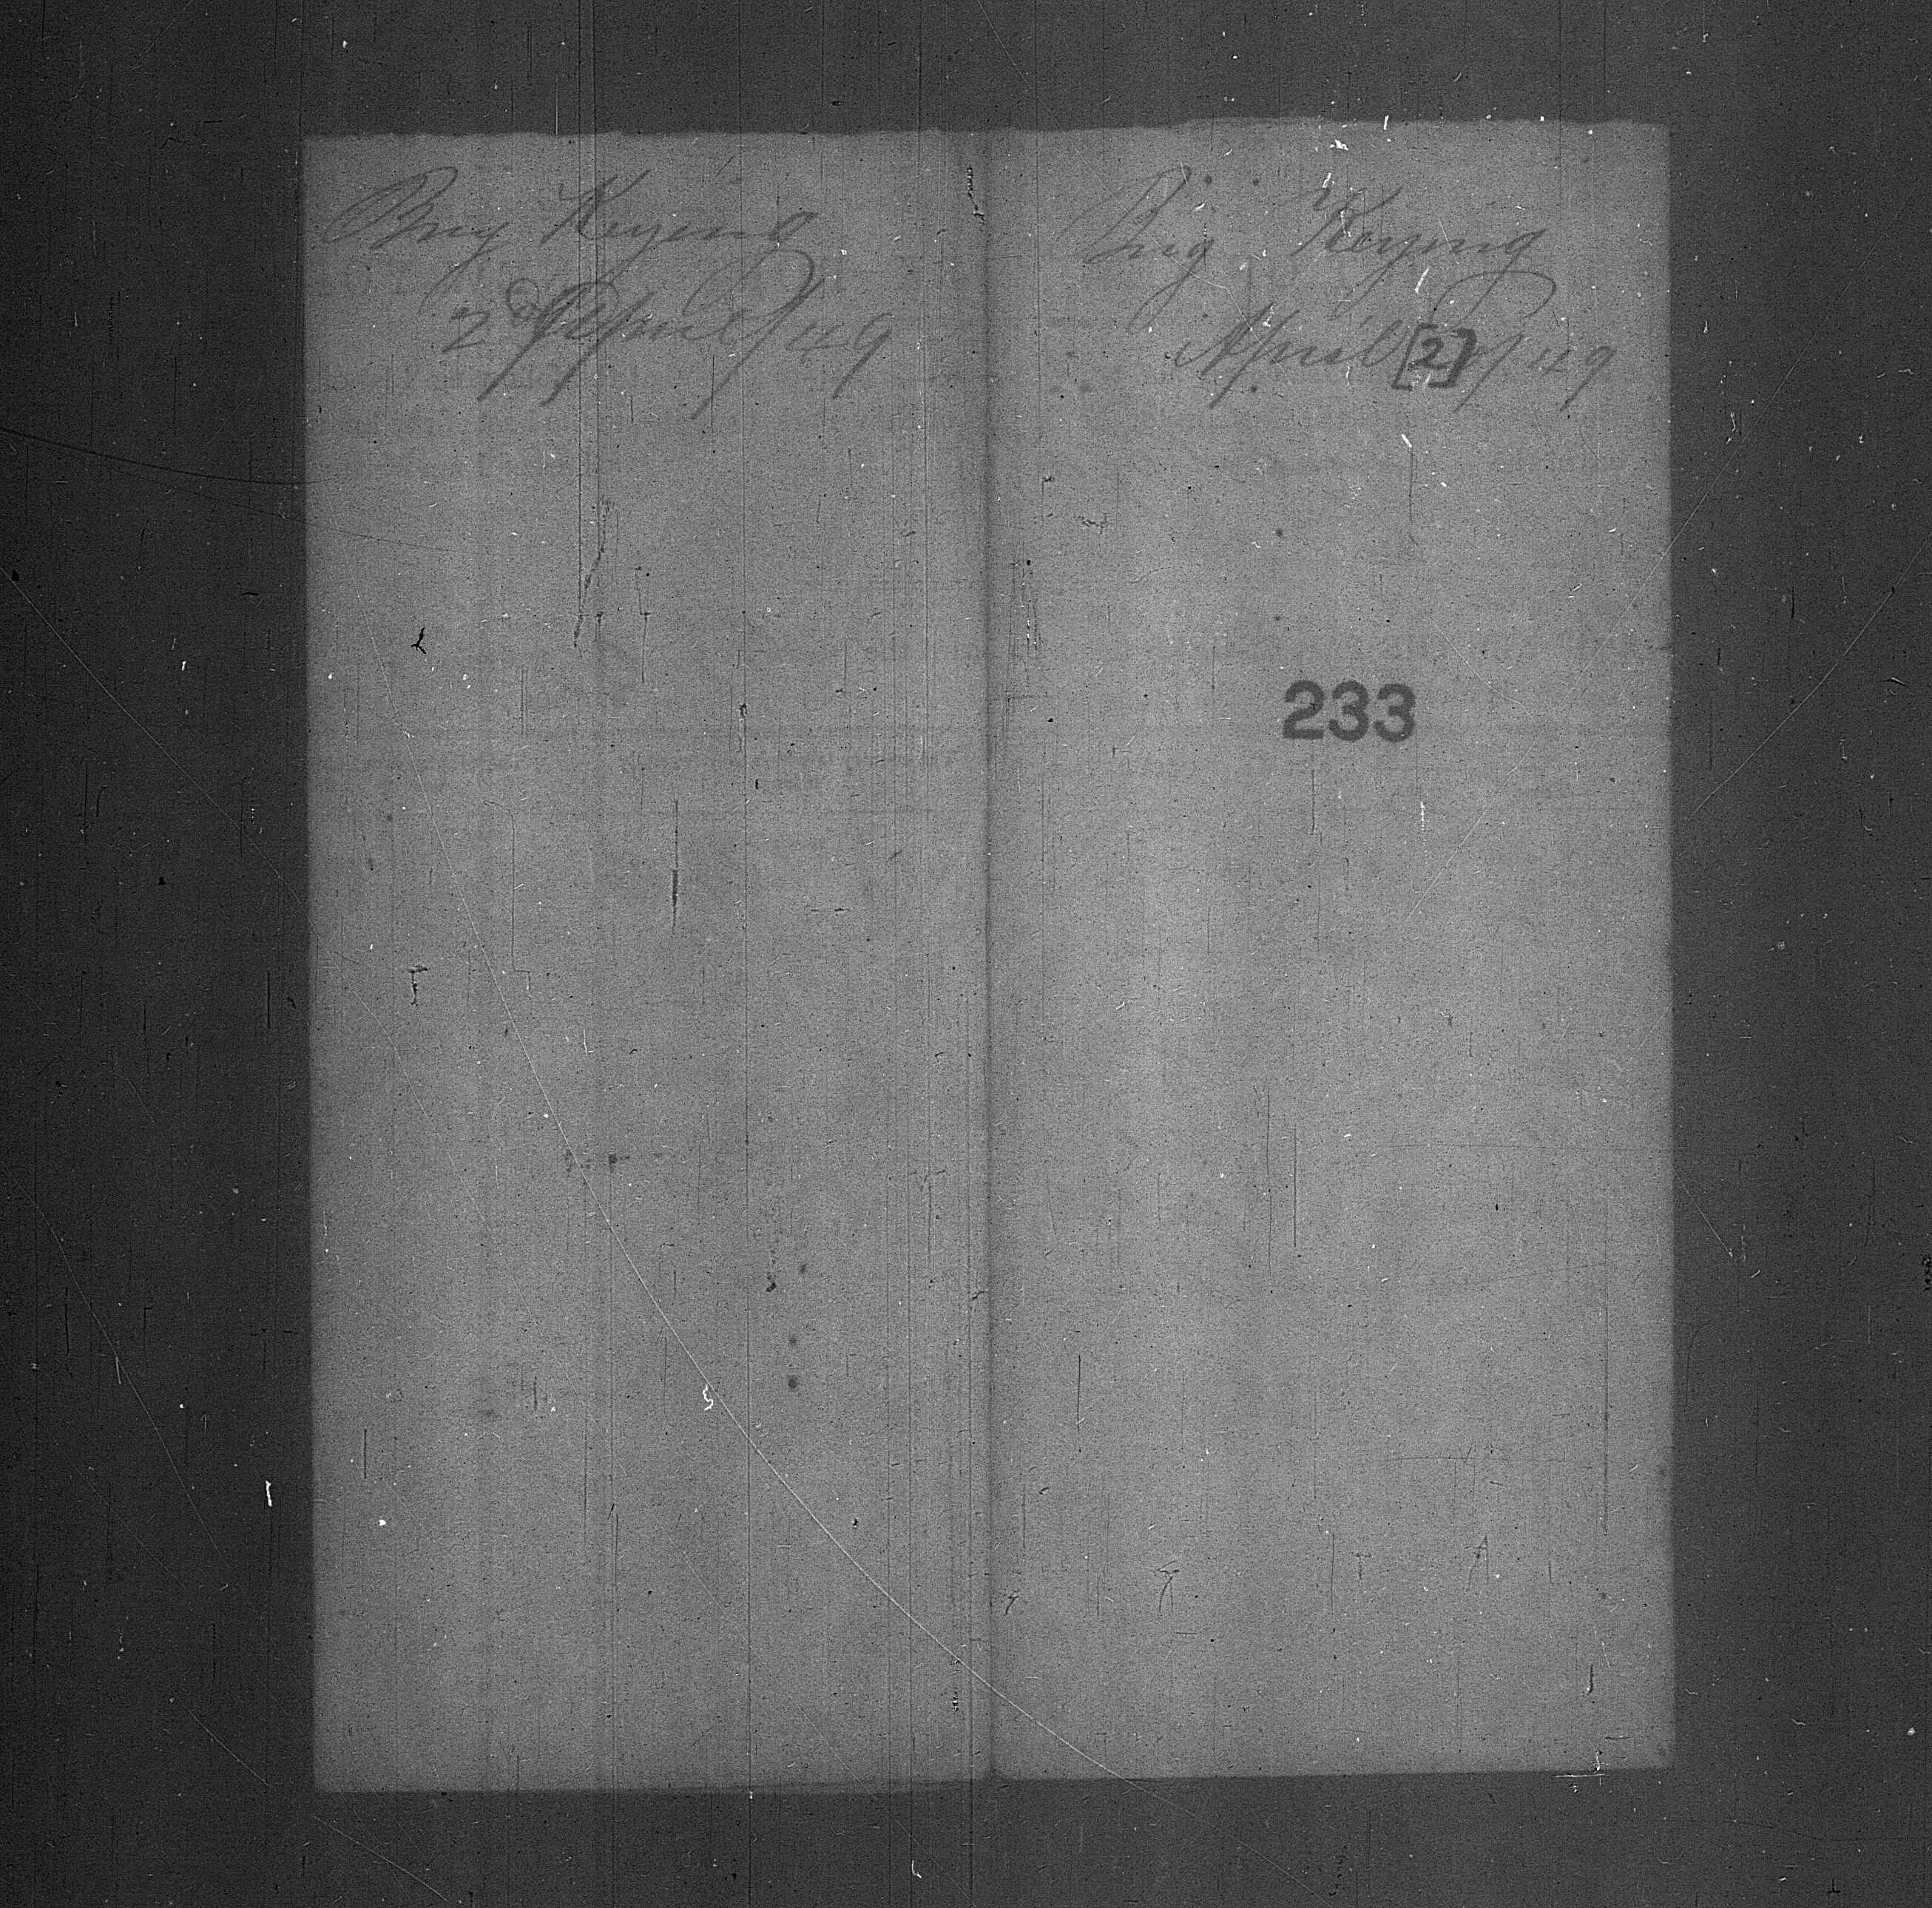 Brig Keying
2d April / 49
Brig Keying
April [2] / 49
233